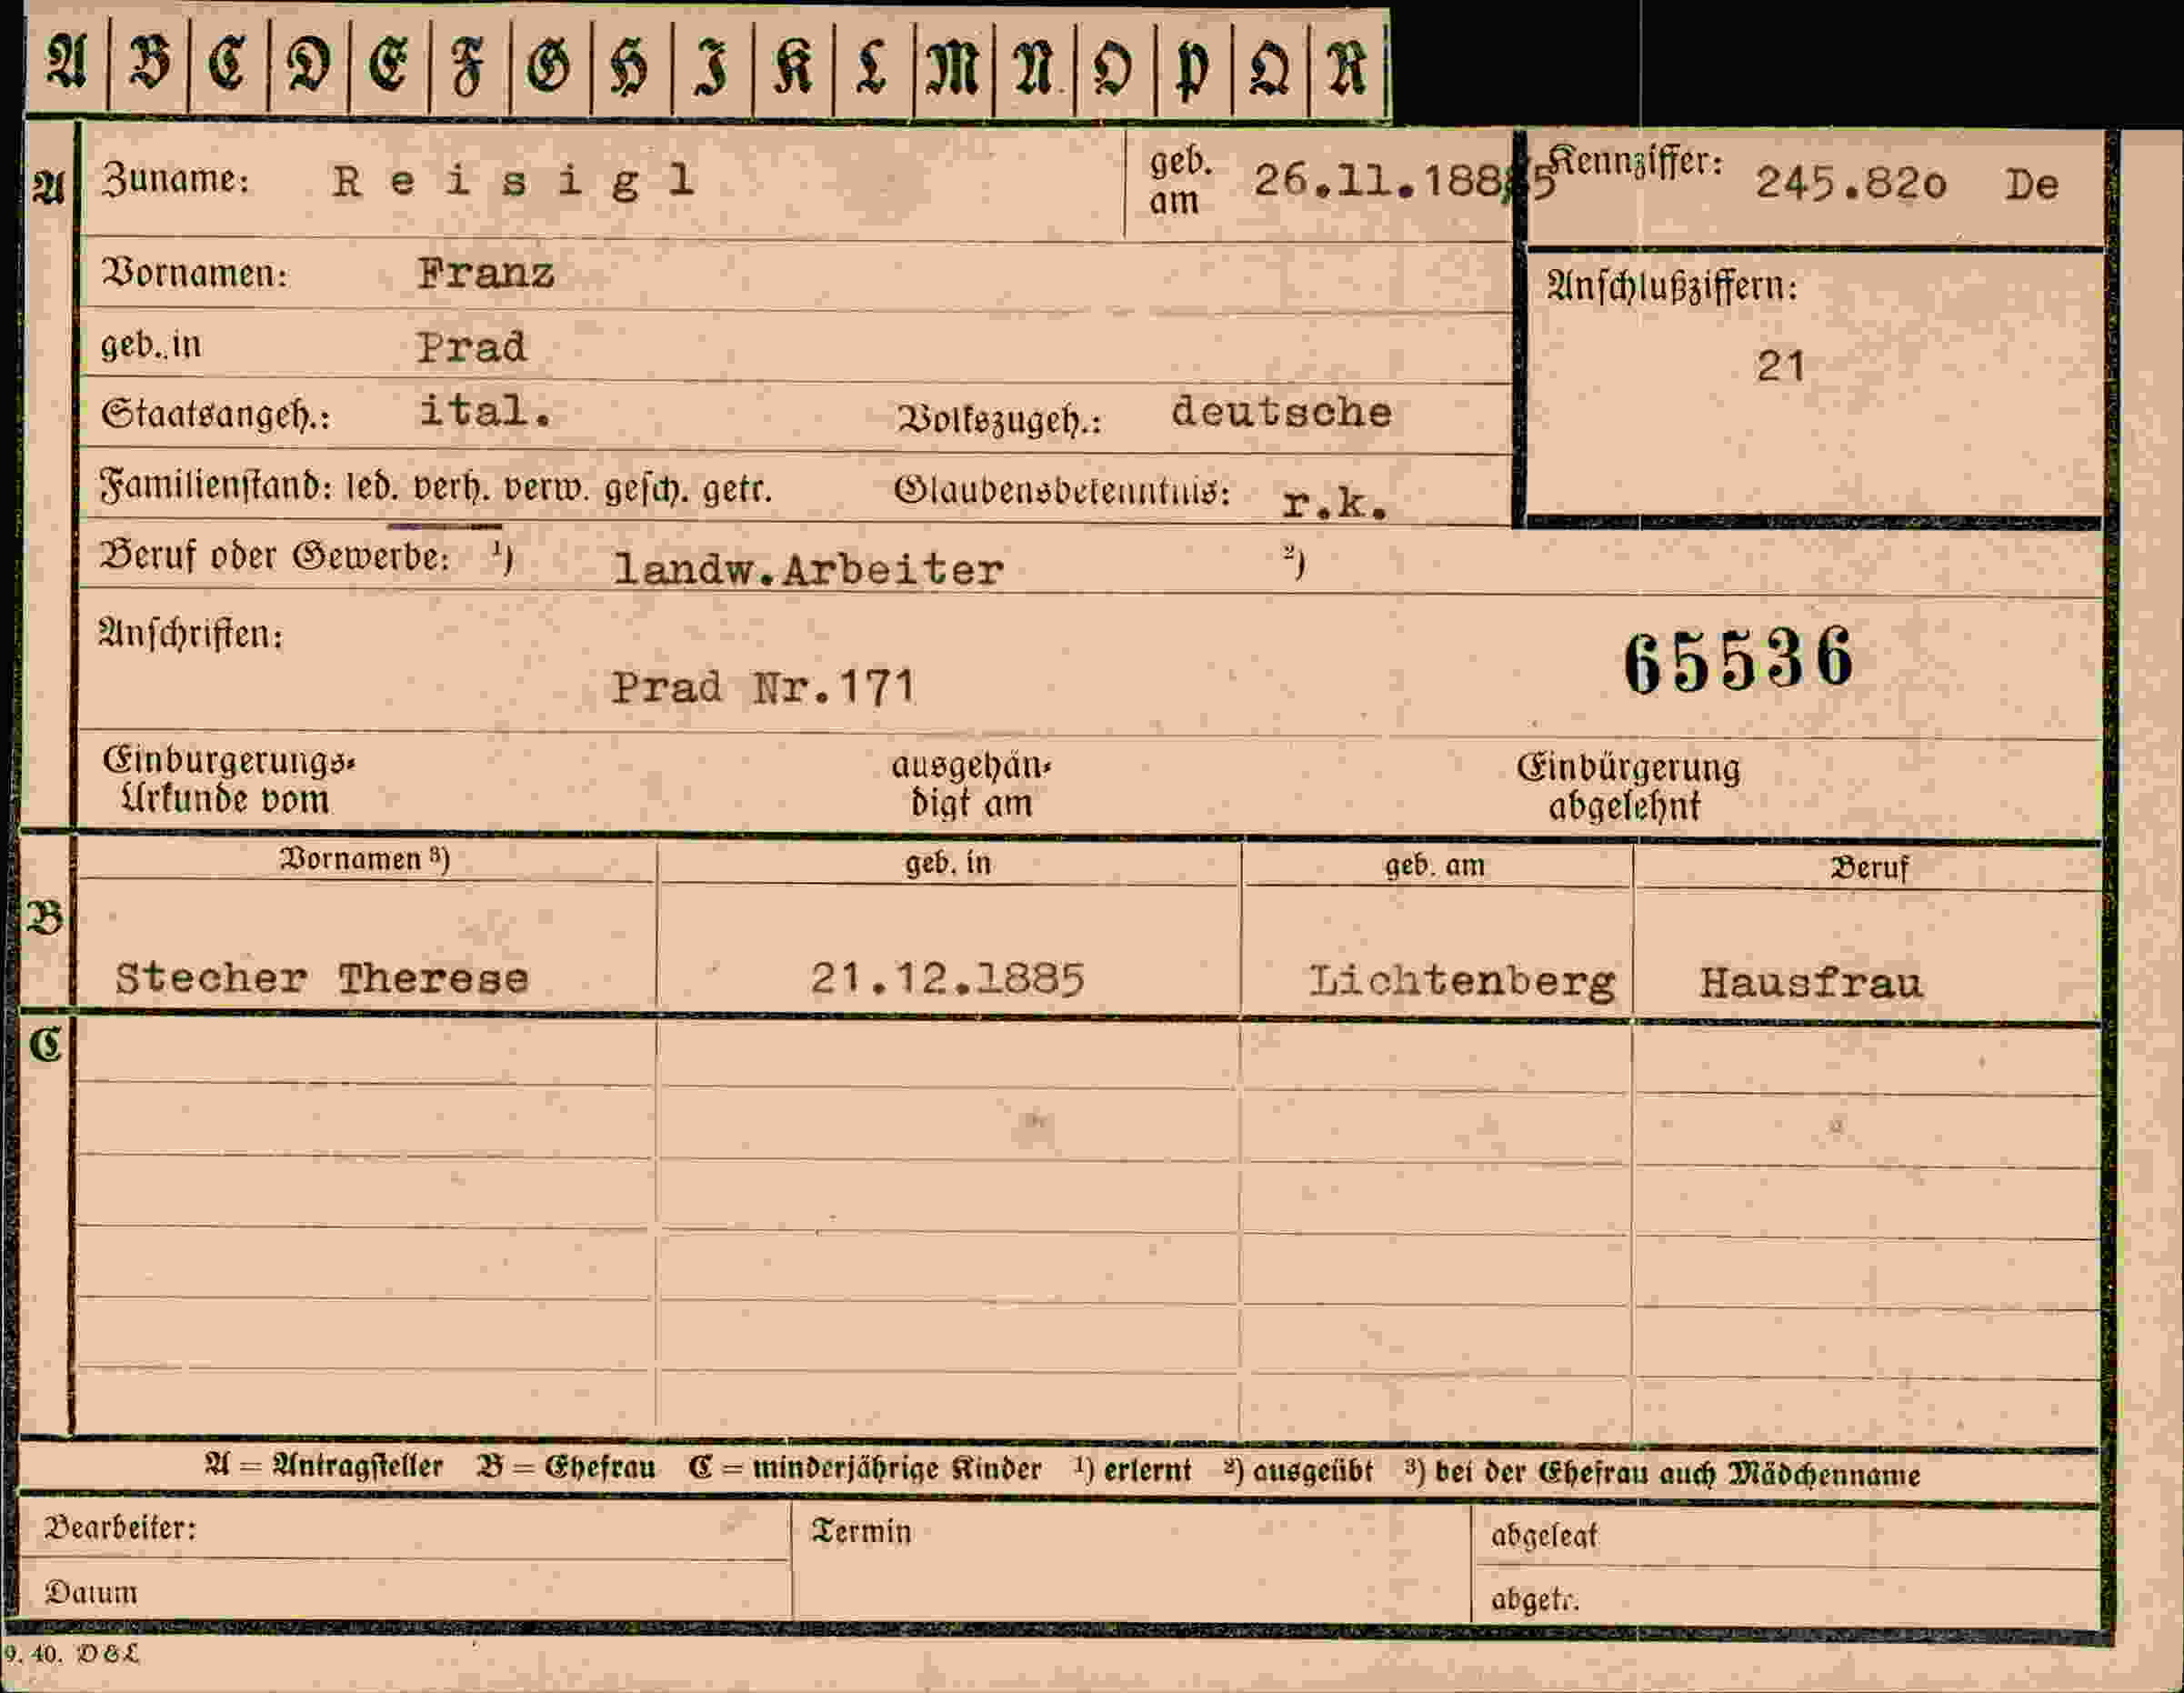 A B C D E F G H I K L M N O P Q R
A Zuname: Reisigl geb. am 26.11.1885 Kennziffer: 245.82o De
Vornamen: Franz Anschlußziffern:
geb. in Prad 21
Staatsangeh.: ital. Volkszugeh.: deutsche
Familienstand: led. verh. verw. gesch. getr. Glaubensbekenntnis: r.k.
Beruf oder Gewerbe: ¹) landw.Arbeiter ²)
Anschriften: 65536
Prad Nr.171
Einbürgerungs- ausgehän- Einbürgerung
Urkunde vom digt am abgelehnt
B Vornamen ³) geb. in geb. am Beruf
Stecher Therese 21.12.1885 Lichtenberg Hausfrau
C
A = Antragsteller B = Ehefrau C = minderjährige Kinder ¹) erlernt ²) ausgeübt ³) bei der Ehefrau auch Mädchenname
Bearbeiter: Termin abgelegt
Datum abgetr.
9. 40. D & L